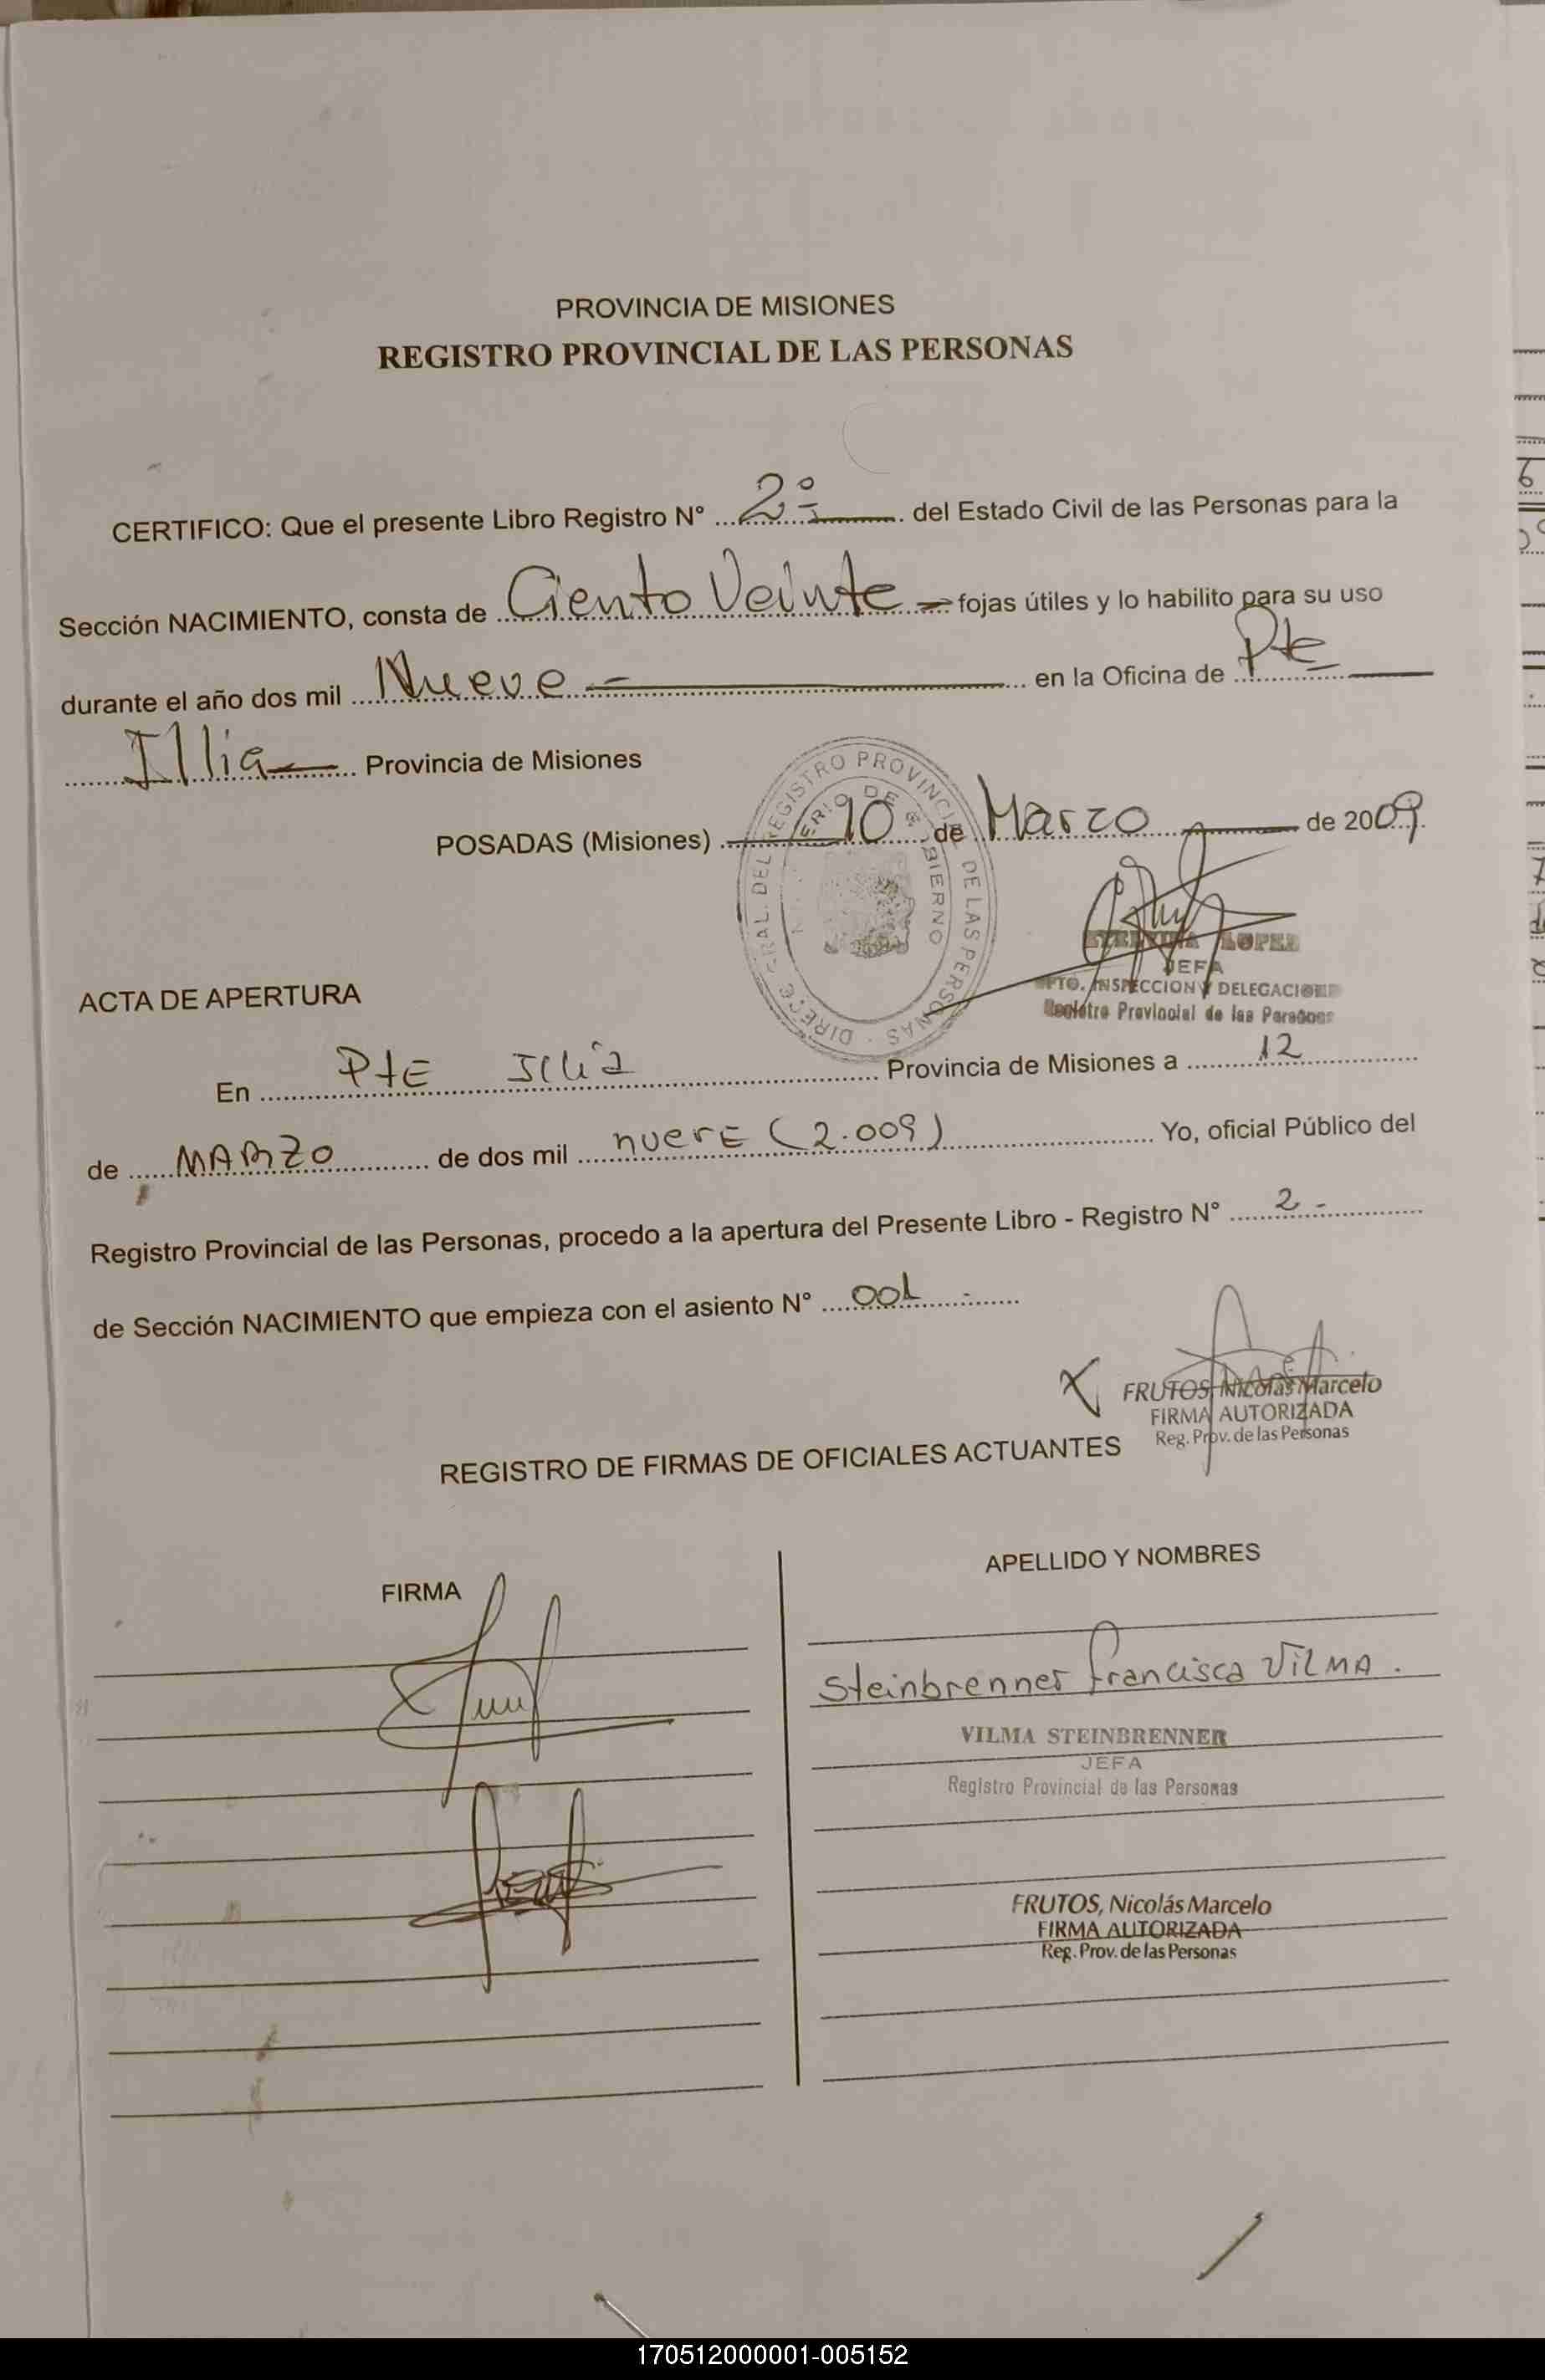 PROVINCIA DE MISIONES
REGISTRO PROVINCIAL DE LAS PERSONAS
CERTIFICO: Que el presente Libro Registro N° 2º del Estado Civil de las Personas para la
Sección NACIMIENTO, consta de Ciento Veinte fojas útiles y lo habilito para su uso
durante el año dos mil Nueve en la Oficina de Pte
Illia Provincia de Misiones
POSADAS (Misiones) 10 de Marzo de 2009
LOPEZ
JEFA
DPTO. INSPECCION Y DELEGACIONES
Registro Provincial de las Personas
ACTA DE APERTURA
En PtE Illia Provincia de Misiones a 12
de MARZO de dos mil nuevE (2.009) Yo, oficial Público del
Registro Provincial de las Personas, procedo a la apertura del Presente Libro - Registro N° 2-
de Sección NACIMIENTO que empieza con el asiento N° 001
FRUTOS, Nicolás Marcelo
FIRMA AUTORIZADA
Reg. Prov. de las Personas
REGISTRO DE FIRMAS DE OFICIALES ACTUANTES
FIRMA
APELLIDO Y NOMBRES
Steinbrenner francisca VilMA.
VILMA STEINBRENNER
JEFA
Registro Provincial de las Personas
FRUTOS, Nicolás Marcelo
FIRMA AUTORIZADA
Reg. Prov. de las Personas
170512000001-005152